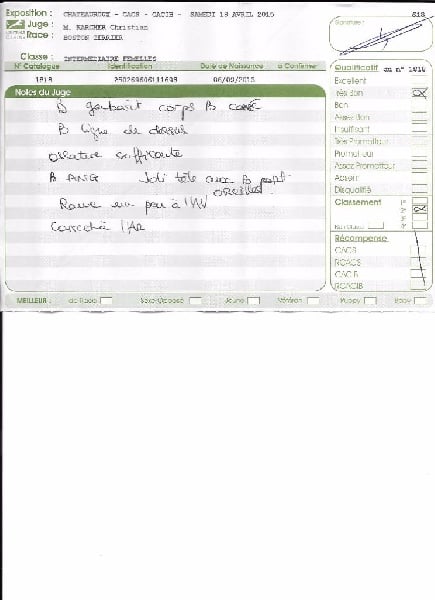 Exposition : CHATEAUROUX - CACS - CACIB - SAMEDI 18 AVRIL 2015
Juge : M. KARCHER Christian
Race : BOSTON TERRIER
Classe : INTERMEDIAIRE FEMELLES
N° Catalogue Identification Date de Naissance à Confirmer
1818
Notes du Juge
B gabarit corps B
B ligne de dessus
ossature suffisante
B ANG Joli tête avec B port
OREILLES
un peu à l'AV
l'AR
Signature :
Qualificatif
Excellent
Très Bon
Bon
Assez Bon
Insuffisant
Très Prometteur
Prometteur
Assez Prometteur
Absent
Disqualifié
Classement 1°
2°
3°
4°
Récompense
CACS
RCACS
CACIB
RCACIB
MEILLEUR : de Race Sexe Opposé Jeune Vétéran Puppy Baby